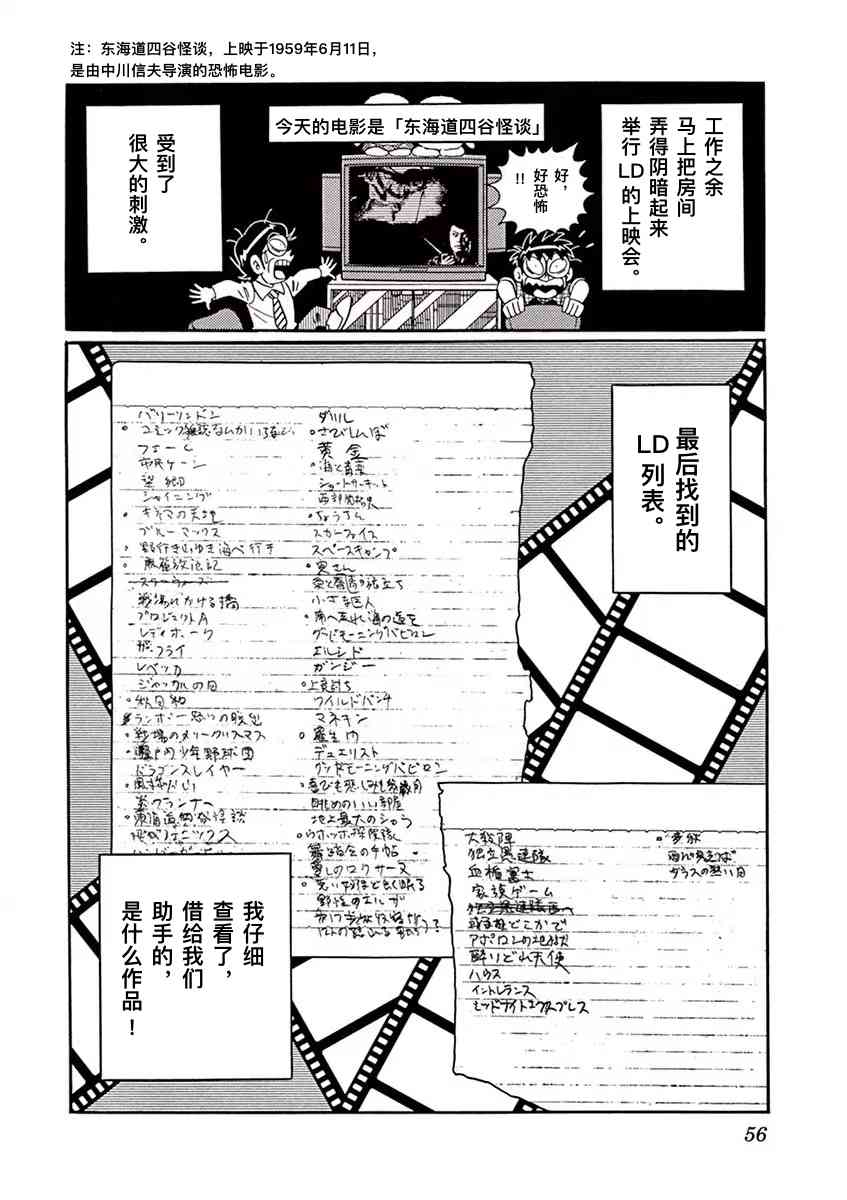 注：东海道四谷怪谈，上映于1959年6月11日，
是由中川信夫导演的恐怖电影。
工作之余
马上把房间
弄得阴暗起来
举行LD的上映会。
今天的电影是「东海道四谷怪谈」
好，
好恐怖
!!
受到了
很大的刺激。
最后找到的
LD列表。
バリーリンドン
。コミック雑誌なんかいらない
市民ケーン
望郷
シャイニング
。キネマの天地
ブルーマックス
。野行き山ゆき海べ行き
。麻雀放浪記
スターウォーズ
戦場にかける橋
プロジェクトA
レディホーク
ザ・フライ
レベッカ
ジャッカルの日
。秋日和
ランボー怒りの脱出
。戦場のメリークリスマス
。瀬戸内少年野球団
ドラゴンスレイヤー
炎のランナー
。東海道四谷怪談
地獄のフェニックス
。さびしんぼ
黄金
。海と毒薬
ショートサーキット
西部開拓史
。ちょうちん
スカーフェイス
スペースキャンプ
。寅さん
小さな巨人
グッドモーニングバビロン
エルシド
ガンジー
。上意討ち
ワイルドバンチ
マネキン
。蘿生門
デュエリスト
グッドモーニングバビロン
。喜びも悲しみも幾歳月
眺めのいい部屋
地上最大のショウ
。ウホッホ探険隊
舞踏会の手帖
愛しのロクサーヌ
。悪い奴ほどよく眠る
野性のエルザ
大殺陣
独立愚連隊
血槍富士
家族ゲーム
独立愚連隊西へ
アポロンの地獄
酔いどれ天使
ハウス
イントレランス
ミッドナイトエクスプレス
雨の朝巴里
我仔细
查看了，
借给我们
助手的，
是什么作品！
56